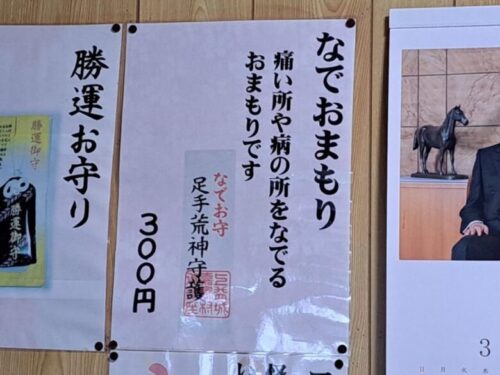 なでおまもり
痛い所や病の所をなでる
おまもりです
なでお守
足手荒神守護
300円
勝運お守り
勝運御守
勝運御守
3
日 月 火 水